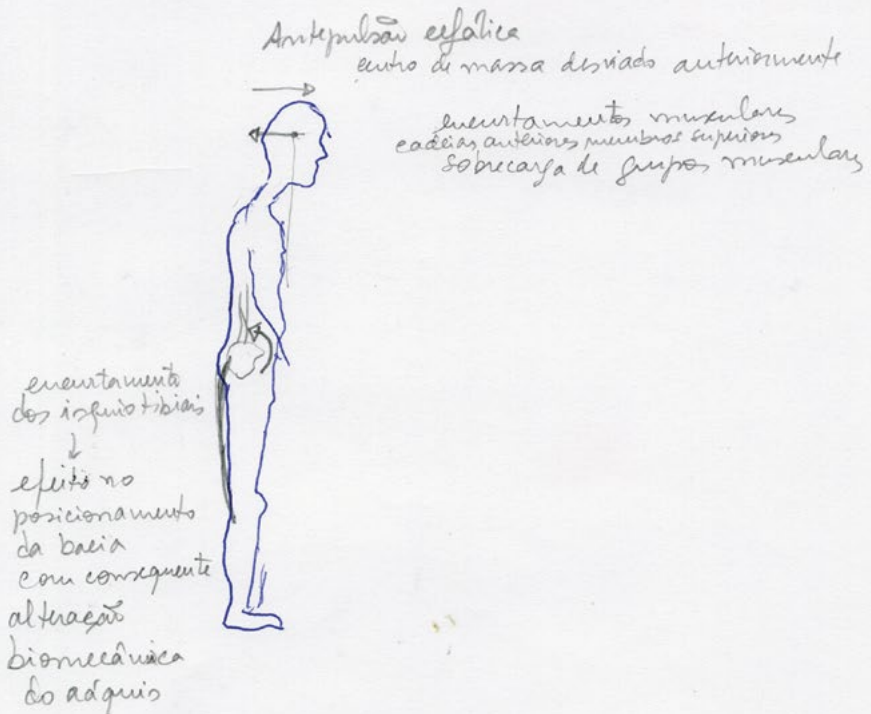 Antepulsão cefálica
centro de massa desviado anteriormente
encurtamentos musculares
cadeias anteriores membros superiores
sobrecarga de grupos musculares
encurtamento
dos isquiotibiais
↓
efeito no
posicionamento
da bacia
com consequente
alteração
biomecânica
do ráquis